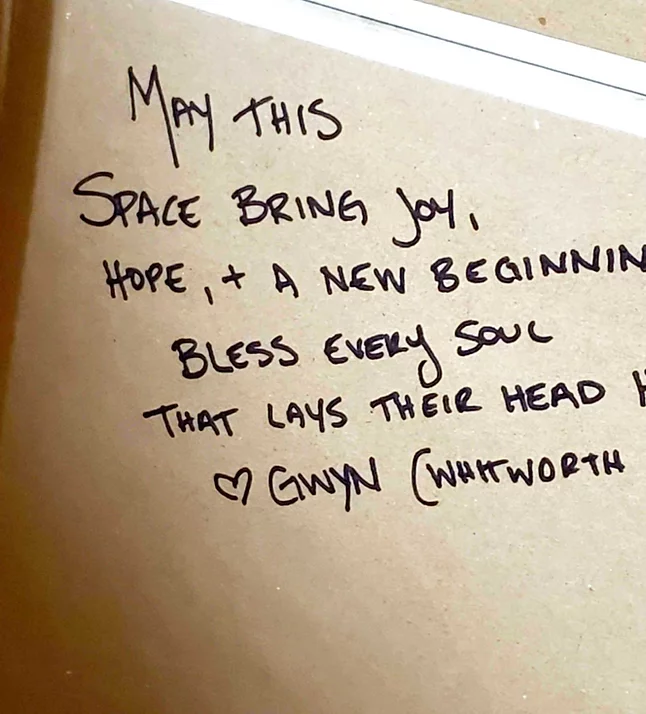 MAY THIS
SPACE BRING JOY,
HOPE, + A NEW BEGINNIN
BLESS EVERY SOUL
THAT LAYS THEIR HEAD H
♡ GWYN (WHITWORTH